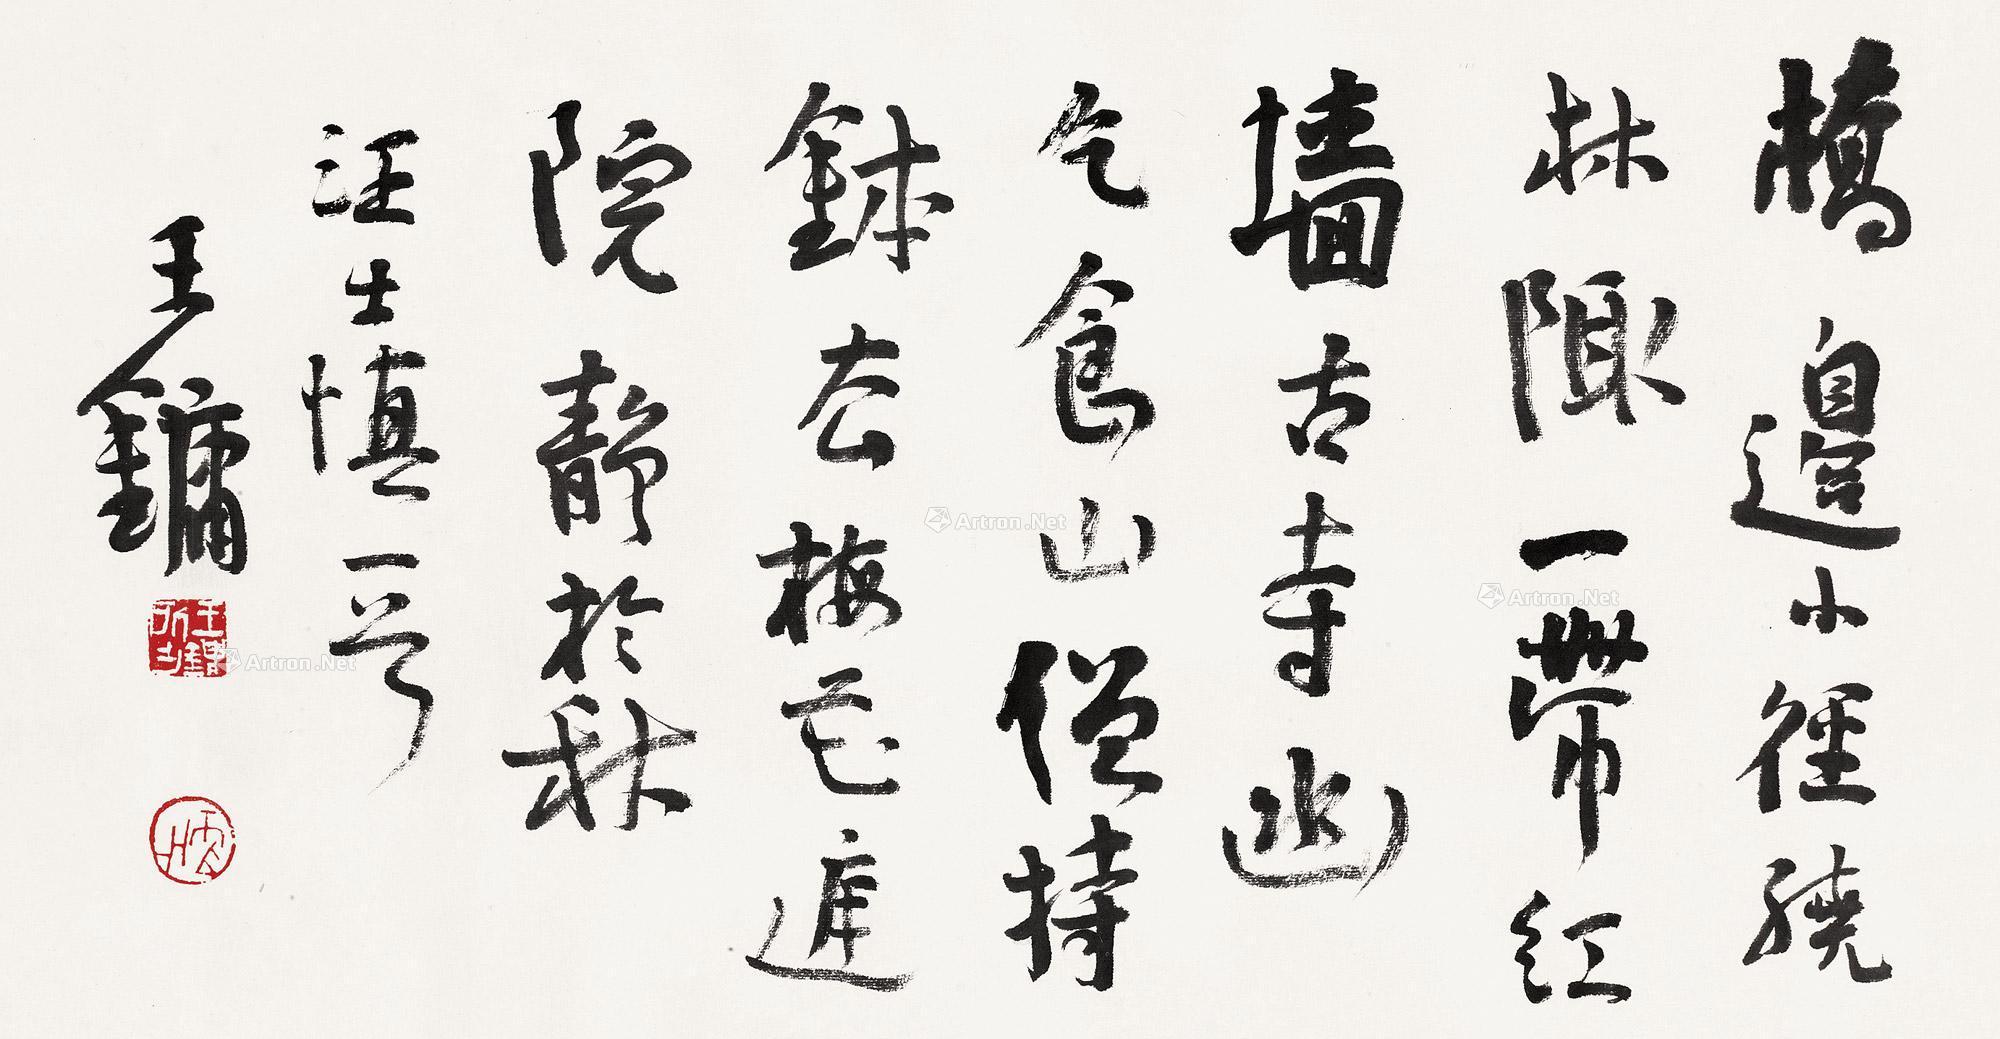 橋邊小徑繞
林陬一帶紅
墙古寺幽
乞食山僧持
鉢去梅花遮
院靜於秋
汪士慎一首
王鏞
Artron.Net
Artron.Net
Artron.Net